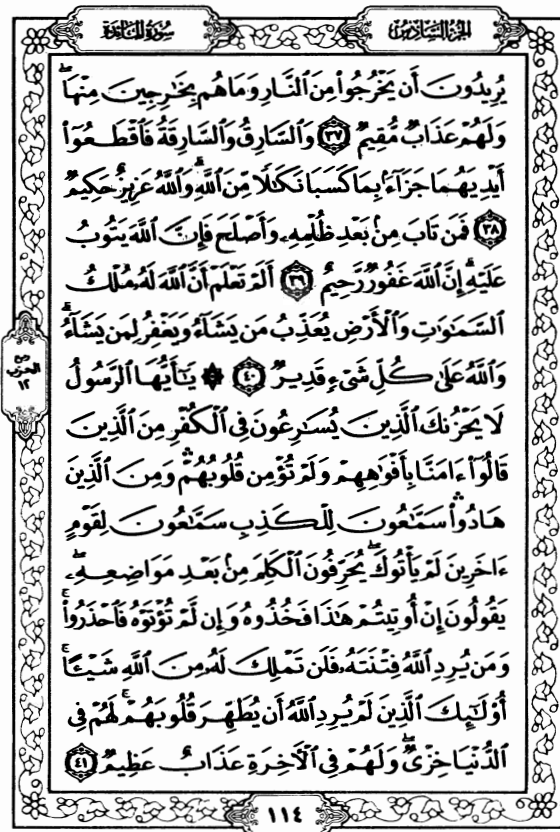 سُورَةُ المَائِدَة
الجُزْءُ السَّادِسُ
يُرِيدُونَ أَن يَخْرُجُوا۟ مِنَ ٱلنَّارِ وَمَا هُم بِخَٰرِجِينَ مِنْهَا ۖ
وَلَهُمْ عَذَابٌ مُّقِيمٌ ٣٧ وَٱلسَّارِقُ وَٱلسَّارِقَةُ فَٱقْطَعُوٓا۟
أَيْدِيَهُمَا جَزَآءًۢ بِمَا كَسَبَا نَكَٰلًا مِّنَ ٱللَّهِ ۗ وَٱللَّهُ عَزِيزٌ حَكِيمٌ
٣٨ فَمَن تَابَ مِنۢ بَعْدِ ظُلْمِهِۦ وَأَصْلَحَ فَإِنَّ ٱللَّهَ يَتُوبُ
عَلَيْهِ ۗ إِنَّ ٱللَّهَ غَفُورٌ رَّحِيمٌ ٣٩ أَلَمْ تَعْلَمْ أَنَّ ٱللَّهَ لَهُۥ مُلْكُ
ٱلسَّمَٰوَٰتِ وَٱلْأَرْضِ يُعَذِّبُ مَن يَشَآءُ وَيَغْفِرُ لِمَن يَشَآءُ ۗ
وَٱللَّهُ عَلَىٰ كُلِّ شَىْءٍ قَدِيرٌ ٤٠ ۞ يَٰٓأَيُّهَا ٱلرَّسُولُ
لَا يَحْزُنكَ ٱلَّذِينَ يُسَٰرِعُونَ فِى ٱلْكُفْرِ مِنَ ٱلَّذِينَ
قَالُوٓا۟ ءَامَنَّا بِأَفْوَٰهِهِمْ وَلَمْ تُؤْمِن قُلُوبُهُمْ ۛ وَمِنَ ٱلَّذِينَ
هَادُوا۟ ۛ سَمَّٰعُونَ لِلْكَذِبِ سَمَّٰعُونَ لِقَوْمٍ
ءَاخَرِينَ لَمْ يَأْتُوكَ ۖ يُحَرِّفُونَ ٱلْكَلِمَ مِنۢ بَعْدِ مَوَاضِعِهِۦ ۖ
يَقُولُونَ إِنْ أُوتِيتُمْ هَٰذَا فَخُذُوهُ وَإِن لَّمْ تُؤْتَوْهُ فَٱحْذَرُوا۟ ۚ
وَمَن يُرِدِ ٱللَّهُ فِتْنَتَهُۥ فَلَن تَمْلِكَ لَهُۥ مِنَ ٱللَّهِ شَيْـًٔا ۚ
أُو۟لَٰٓئِكَ ٱلَّذِينَ لَمْ يُرِدِ ٱللَّهُ أَن يُطَهِّرَ قُلُوبَهُمْ ۚ لَهُمْ فِى
ٱلدُّنْيَا خِزْىٌ ۖ وَلَهُمْ فِى ٱلْءَاخِرَةِ عَذَابٌ عَظِيمٌ ٤١
ربع
الحزب
١٢
١١٤